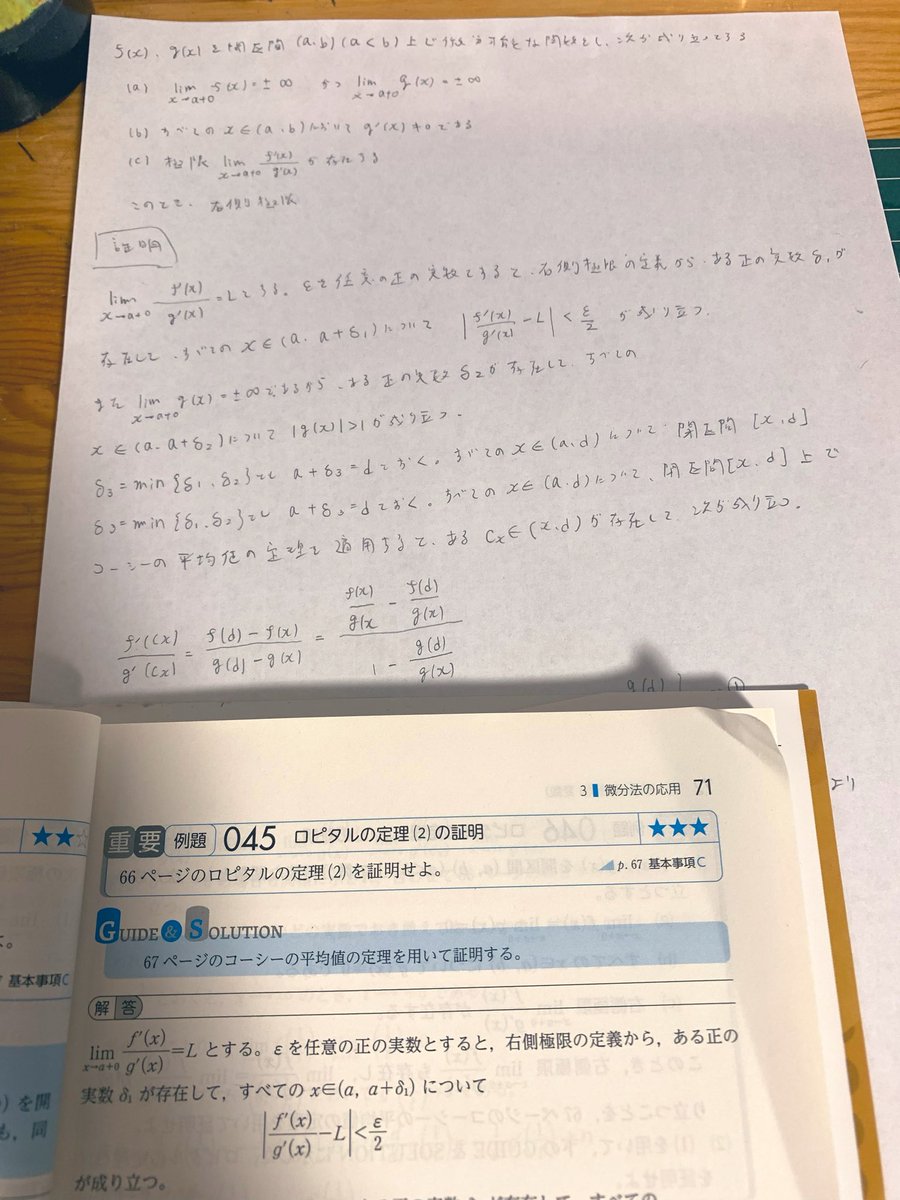 f(x), g(x) を開区間 (a, b) (a < b) 上で微分可能な関数とし、次が成り立つとする
(a) lim x→a+0 f(x) = ±∞ かつ lim x→a+0 g(x) = ±∞
(b) すべての x ∈ (a, b) において g'(x) ≠ 0 である
(c) 極限 lim x→a+0 f'(x)/g'(x) が存在する
このとき、右側極限
証明
lim x→a+0 f'(x)/g'(x) = L とする。εを任意の正の実数とすると、右側極限の定義から、ある正の実数 δ₁が
存在して、すべての x ∈ (a, a+δ₁) について |f'(x)/g'(x) - L| < ε/2 が成り立つ.
また lim x→a+0 g(x) = ±∞ であるから、ある正の実数 δ₂が存在して、すべての
x ∈ (a, a+δ₂) について |g(x)| > 1 が成り立つ.
δ₃ = min{δ₁, δ₂} とし a + δ₃ = d とおく。すべての x ∈ (a, d) について、閉区間 [x, d]
δ₃ = min{δ₁, δ₂} とし a + δ₃ = d とおく。すべての x ∈ (a, d) について、閉区間 [x, d] 上で
コーシーの平均値の定理を適用すると、ある Cx ∈ (x, d) が存在して、次が成り立つ.
f'(Cx)/g'(Cx) = (f(d) - f(x))/(g(d) - g(x)) = (f(x)/g(x - f(d)/g(x))/(1 - g(d)/g(x))
g(d) } ①
より
3 微分法の応用 71
重要 例題 045 ロピタルの定理(2)の証明 ★★★
66ページのロピタルの定理(2)を証明せよ。 p.67 基本事項C
GUIDE & SOLUTION
67ページのコーシーの平均値の定理を用いて証明する。
解答
lim x→a+0 f'(x)/g'(x) = L とする。εを任意の正の実数とすると、右側極限の定義から、ある正の
実数 δ₁ が存在して、すべての x∈(a, a+δ₁) について
|f'(x)/g'(x) - L| < ε/2
が成り立つ。
★★☆
基本事項C
を開
も、同